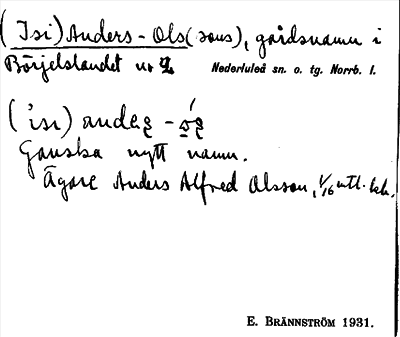 (Isi) Anders-Ols(sons), gårdsnamn i
Börjelslandet nr 2 Nederluleå sn. o. tg. Norrb. l.
Ganska nytt namn.
Ägare Anders Alfred Olsson, 1/16 mtl.
E. BRÄNNSTRÖM 1931.